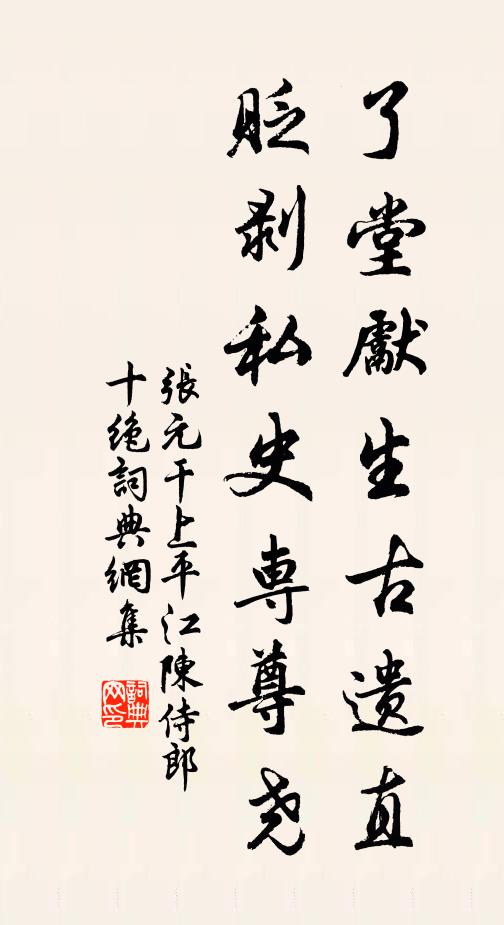 了堂獻生古遺直
貶剥私史專尊尧
張元干上平江陳侍郎
十绝詞典網集
詞典網印